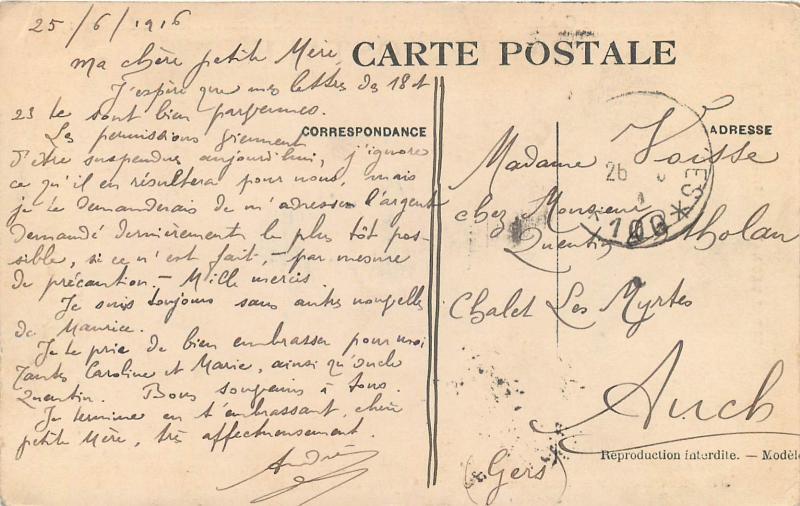 25/6/1916
ma chère petite Mère,
CARTE POSTALE
J'espère que mes lettres des 18 et
23 te sont bien parvenues.
Les permissions viennent
CORRESPONDANCE
d'être suspendues aujourd'hui, j'ignore
ce qu'il en résultera pour nous, mais
je te demanderais de m'adresser l'argent
demandé dernièrement le plus tôt pos-
sible, si ce n'est fait, - par mesure
de précaution. - Mille mercis.
Je suis toujours sans autres nouvelles
de Maurice.
Je te prie de bien embrasser pour moi
Tantes Caroline et Marie, ainsi qu'oncle
Quentin. Bons souvenirs à tous.
Je termine en t'embrassant, chère
petite Mère, très affectueusement.
André
ADRESSE
Madame Voisse
chez Monsieur
Quentin
Chalet Les Myrtes
Auch
(Gers)
26
ES
*106*
Reproduction interdite. — Modèle